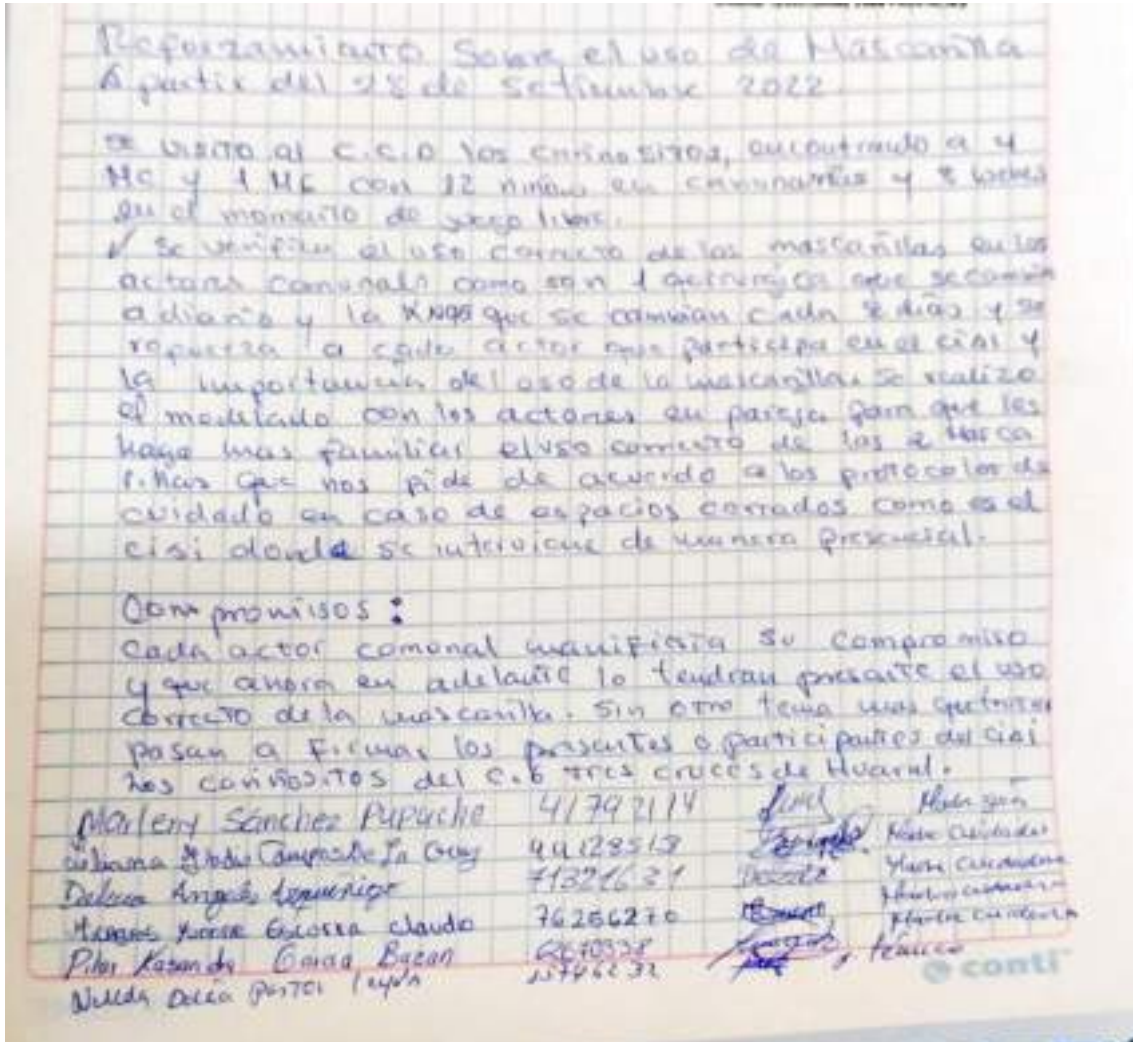 Reforzamiento Sobre el uso de Mascarilla
A partir del 28 de Setiembre 2022
se visito al C.C.D los cariñositos, encontrando a 4
MC y 1 MG con 12 niños en y 8
en el momento de juego libre.
✓ Se verifica el uso correcto de las mascarillas en los
actores comunales como son 1 quirurgica que se cambia
a diario y la KN95 que se cambian cada 2 dias y se
refuerza a cada actor que participa en el cisi y
la importancia del uso de la mascarilla. Se realizo
el modelado con los actores en pareja para que les
haga mas familiar el uso correcto de las 2 Masca
rillas que nos pide de acuerdo a los protocolos de
cuidado en caso de espacios cerrados como es el
cisi donde se interviene de manera presencial.
Compromisos:
Cada actor comonal manifiesta su compromiso
y que ahora en adelante lo tendran presente el uso
correcto de la mascarilla. Sin otro tema mas que tratar
pasan a firmar los presentes o participantes del cisi
Los cariñositos del C.6 tres cruces de Huaral.
Marleny Sánchez Pupuche 41792114 Madre guía
Campos De La Cruz 44128518 Madre Cuidadora
Angeles 71321631 Madre cuidadora
claudo 76256270 Madre cuidadora
Pilar Kasandra Bazan Madre cuidadora
Nelida tecnico
conti